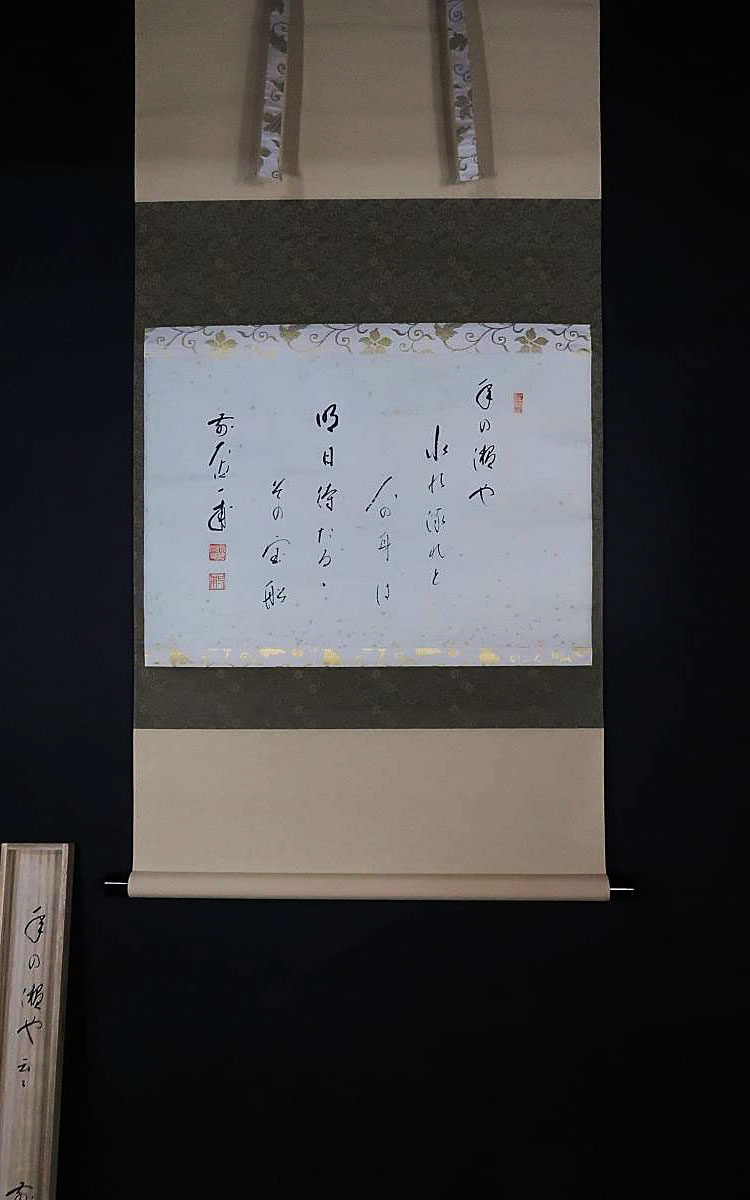 年の瀬や
水の流れと
人の身は
明日待たるゝ
その宝船
年の瀬や云々